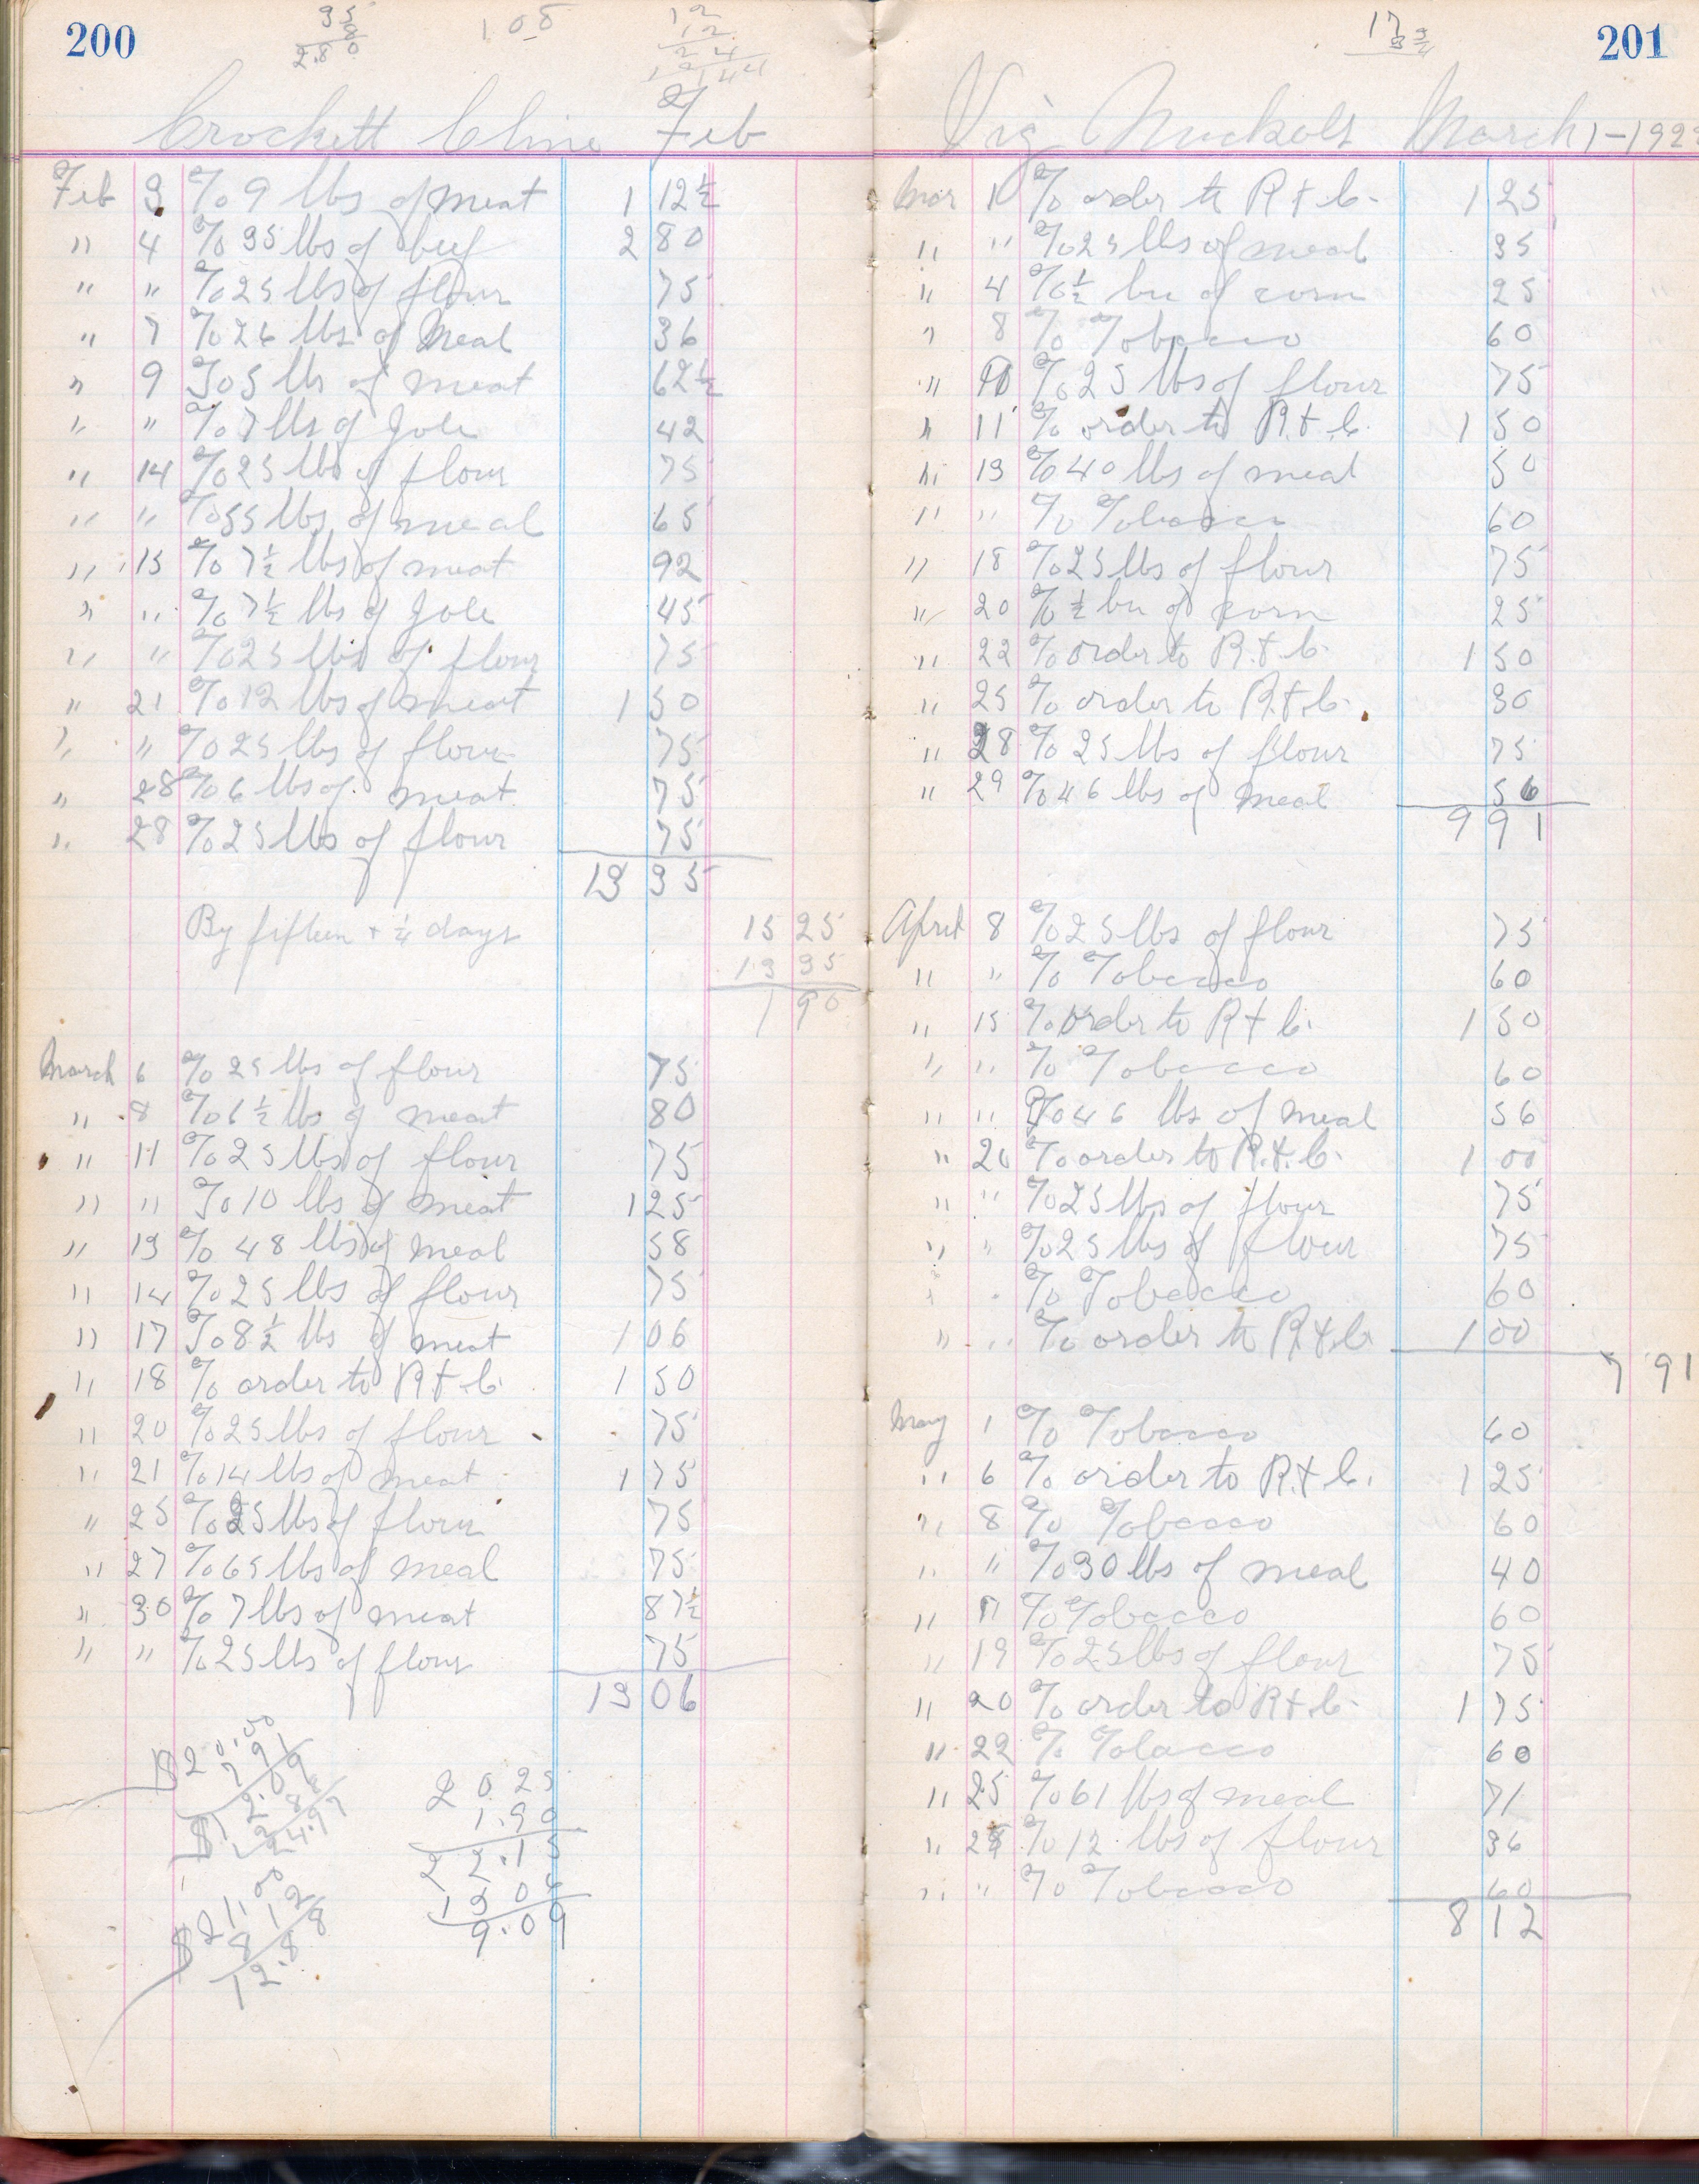 200
35
8
2.80
108
12
12
24
12
144
Crockett Cline Feb
Feb 3 To 9 lbs of meat 1 12½
" 4 To 35 lbs of beef 2 80
" " To 25 lbs of flour 75
" 7 To 26 lbs of Meal 36
" 9 To 5 lbs of meat 62½
" " To 7 lbs of Jole 42
" 14 To 25 lbs of flour 75
" " To 55 lbs of meal 65
" 15 To 7½ lbs of meat 92
" " To 7½ lbs of Jole 45
" " To 25 lbs of flour 75
" 21 To 12 lbs of meat 1 50
" " To 25 lbs of flour 75
" 28 To 6 lbs of meat 75
" 28 To 25 lbs of flour 75
13 35
By fifteen + ¼ days 15 25
13 35
1 90
March 6 To 25 lbs of flour 75
" 8 To 6½ lbs of meat 80
" 11 To 25 lbs of flour 75
" " To 10 lbs of meat 1 25
" 13 To 48 lbs of meal 58
" 14 To 25 lbs of flour 75
" 17 To 8½ lbs of meat 1 06
" 18 To order to R + C. 1 50
" 20 To 25 lbs of flour 75
" 21 To 14 lbs of meat 1 75
" 25 To 25 lbs of flour 75
" 27 To 65 lbs of meal 75
" 30 To 7 lbs of meat 87½
" " To 25 lbs of flour 75
13 06
20.25
1.90
22.15
13 06
9.09
$21.00
8 12
12.88
201
17
3¾
Nuckols March 1-192
Mar 1 To order to R + C. 1 25
" " To 25 lbs of meal 35
" 4 To ½ bu of corn 25
" 8 To Tobacco 60
" 10 To 25 lbs of flour 75
" 11 To order to R. + C. 1 50
" 13 To 40 lbs of meal 50
" " To Tobacco 60
" 18 To 25 lbs of flour 75
" 20 To ½ bu of corn 25
" 22 To order to R. + C. 1 50
" 25 To order to R. + C. 30
" 28 To 25 lbs of flour 75
" 29 To 46 lbs of meal 56
9 91
April 8 To 25 lbs of flour 75
" " To Tobacco 60
" 15 To order to R + C. 1 50
" " To Tobacco 60
" " To 46 lbs of meal 56
" 20 To order to R. + C. 1 00
" " To 25 lbs of flour 75
" " To 25 lbs of flour 75
" " To Tobacco 60
" " To order to R + C. 1 00
7 91
May 1 To Tobacco 60
" 6 To order to R. + C. 1 25
" 8 To Tobacco 60
" " To 30 lbs of meal 40
" To Tobacco 60
" 19 To 25 lbs of flour 75
" 20 To order to R + C. 1 75
" 22 To Tobacco 60
" 25 To 61 lbs of meal 71
" To 12 lbs of flour 36
" " To Tobacco 60
8 12